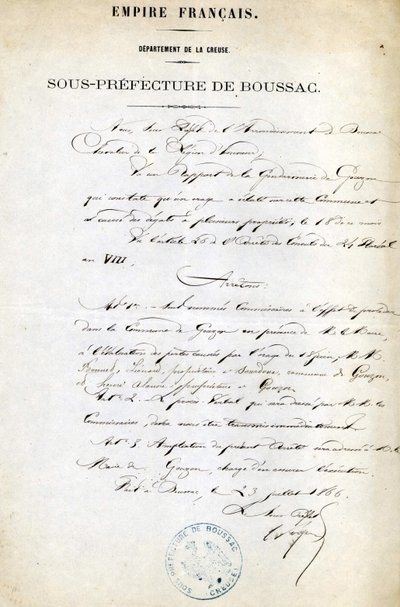 EMPIRE FRANÇAIS.
DÉPARTEMENT DE LA CREUSE.
SOUS-PRÉFECTURE DE BOUSSAC.
Nous, Sous Préfet de l'Arrondissement de Boussac
Chevalier de la Légion d'honneur,
Vu un Rapport de la Gendarmerie de Gouzon
qui constate qu'un orage a éclaté sur cette Commune et
a causé des dégâts à plusieurs propriétés, le 18 de ce mois
Vu l'article 26 de l'Arrêté des Consuls du 24 floréal
an VIII,
Arrêtons:
Art. 1er. - Sont nommés Commissaires à l'effet de procéder
dans la Commune de Gouzon en présence de M. le Maire,
à l'évaluation des pertes causées par l'orage du 18 juin, M.M.
propriétaire à commune de Gouzon,
et propriétaire à Gouzon.
Art. 2. - Le procès-verbal qui sera dressé par M.M. les
Commissaires, devra nous être transmis immédiatement.
Art. 3 Ampliation du présent Arrêté sera adressé à M. le
Maire de Gouzon, chargé d'en assurer l'exécution.
Fait à Boussac, le 23 juillet 1866.
Le Sous Préfet
SOUS PRÉFECTURE DE BOUSSAC
(CREUSE)